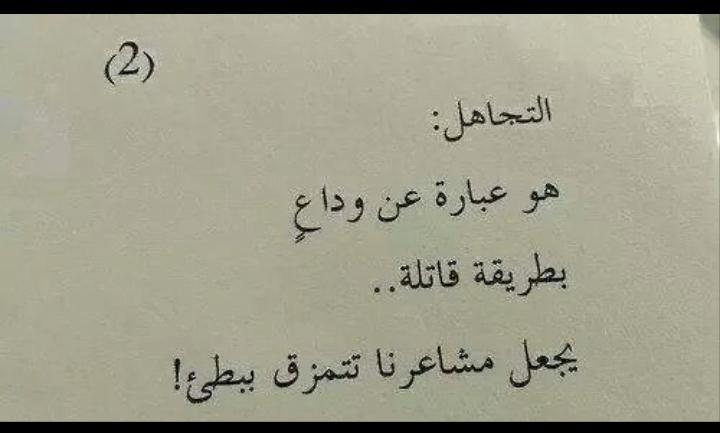 (2)
التجاهل:
هو عبارة عن وداعٍ
بطريقة قاتلة..
يجعل مشاعرنا تتمزق ببطئ!